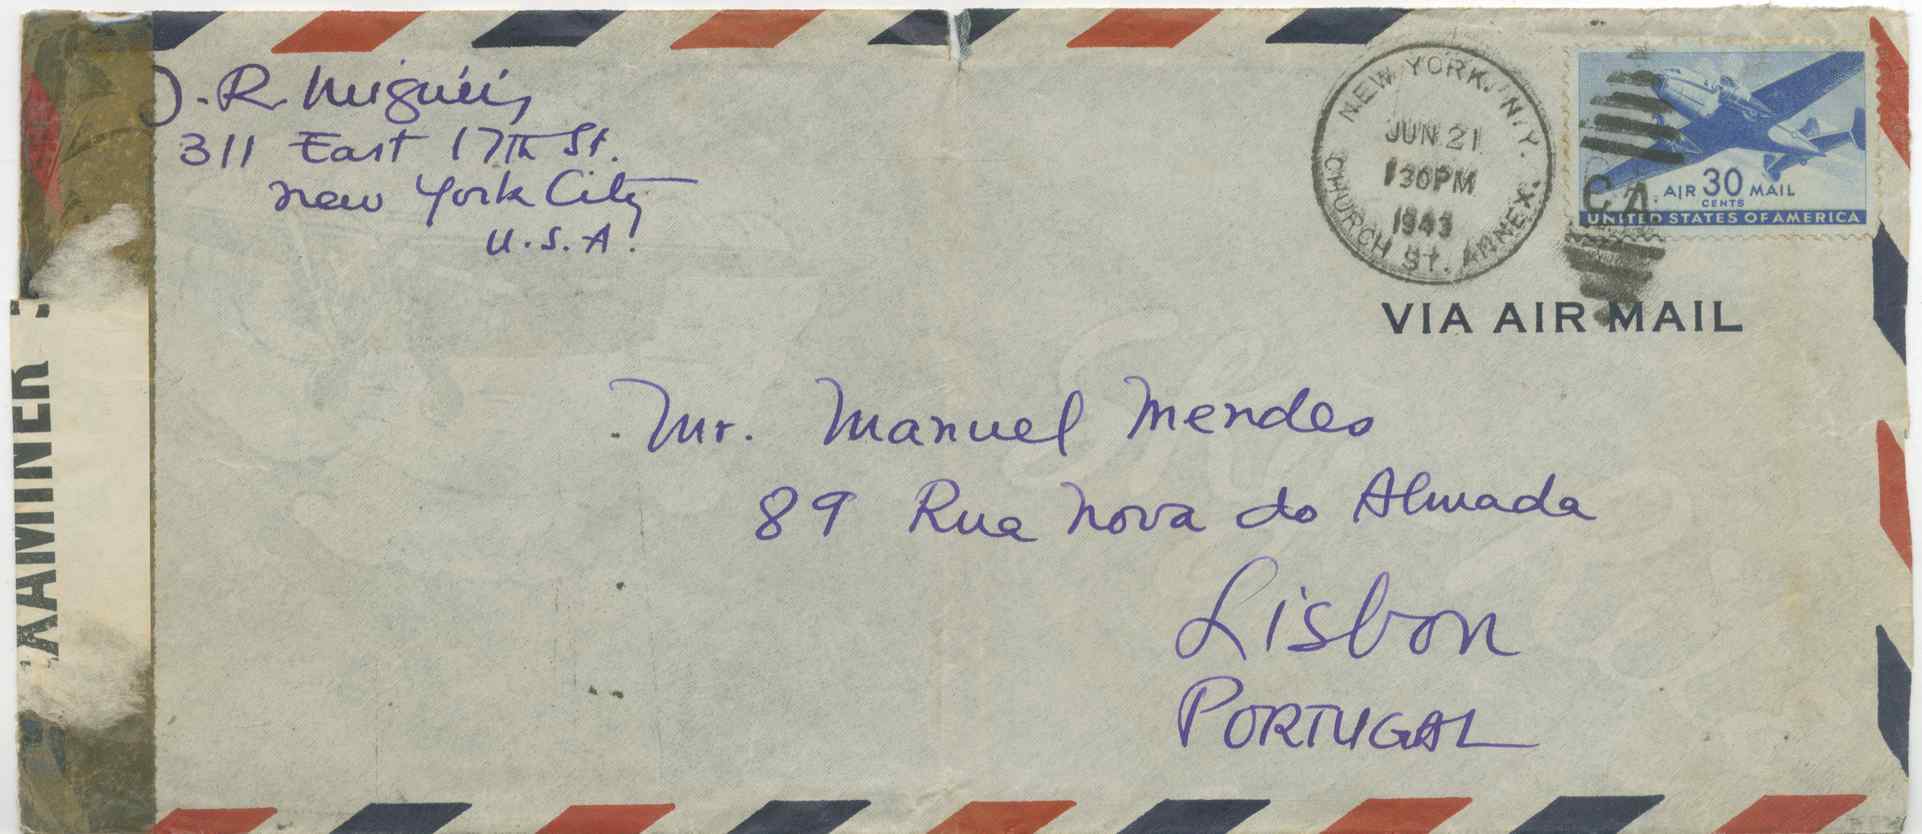 J. R. Miguéis
311 East 17th St.
New York City
U.S.A.
NEW YORK, N.Y.
JUN 21
1 30 PM
1943
CHURCH ST. ANNEX.
C.A.
AIR 30 MAIL
CENTS
UNITED STATES OF AMERICA
VIA AIR MAIL
Mr. Manuel Mendes
89 Rua Nova do Almada
Lisbon
PORTUGAL
XAMINER